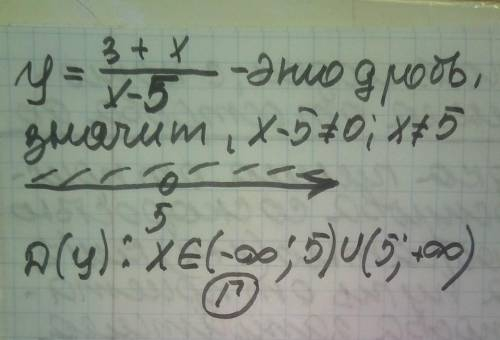 y = \frac{3 + x}{x-5} - это дробь,
значит, x-5≠0; x≠5
5
D(y): x∈(-∞; 5)∪(5; +∞)